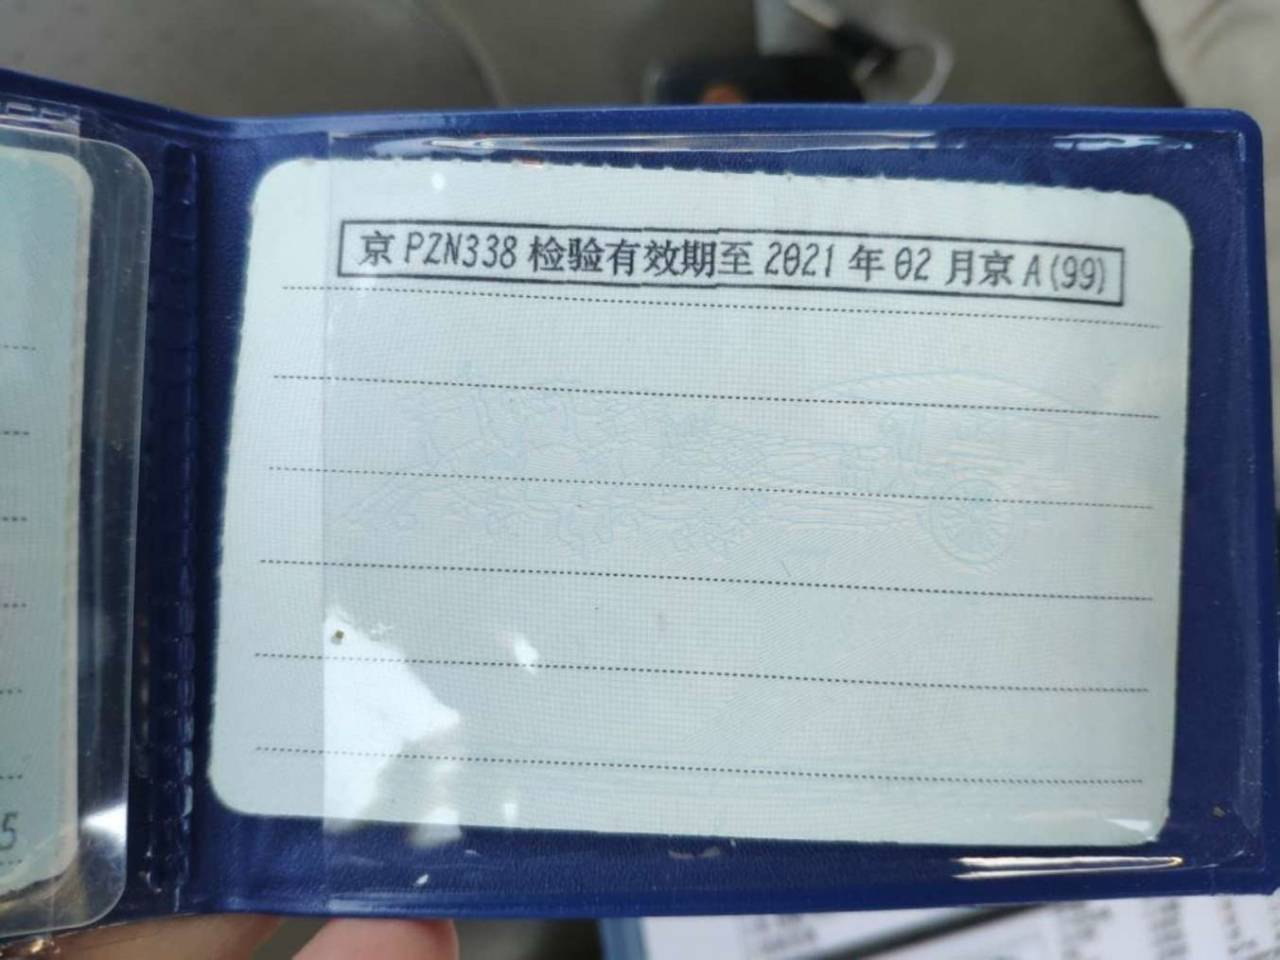 京PZN338检验有效期至2021年02月京A(99)
5